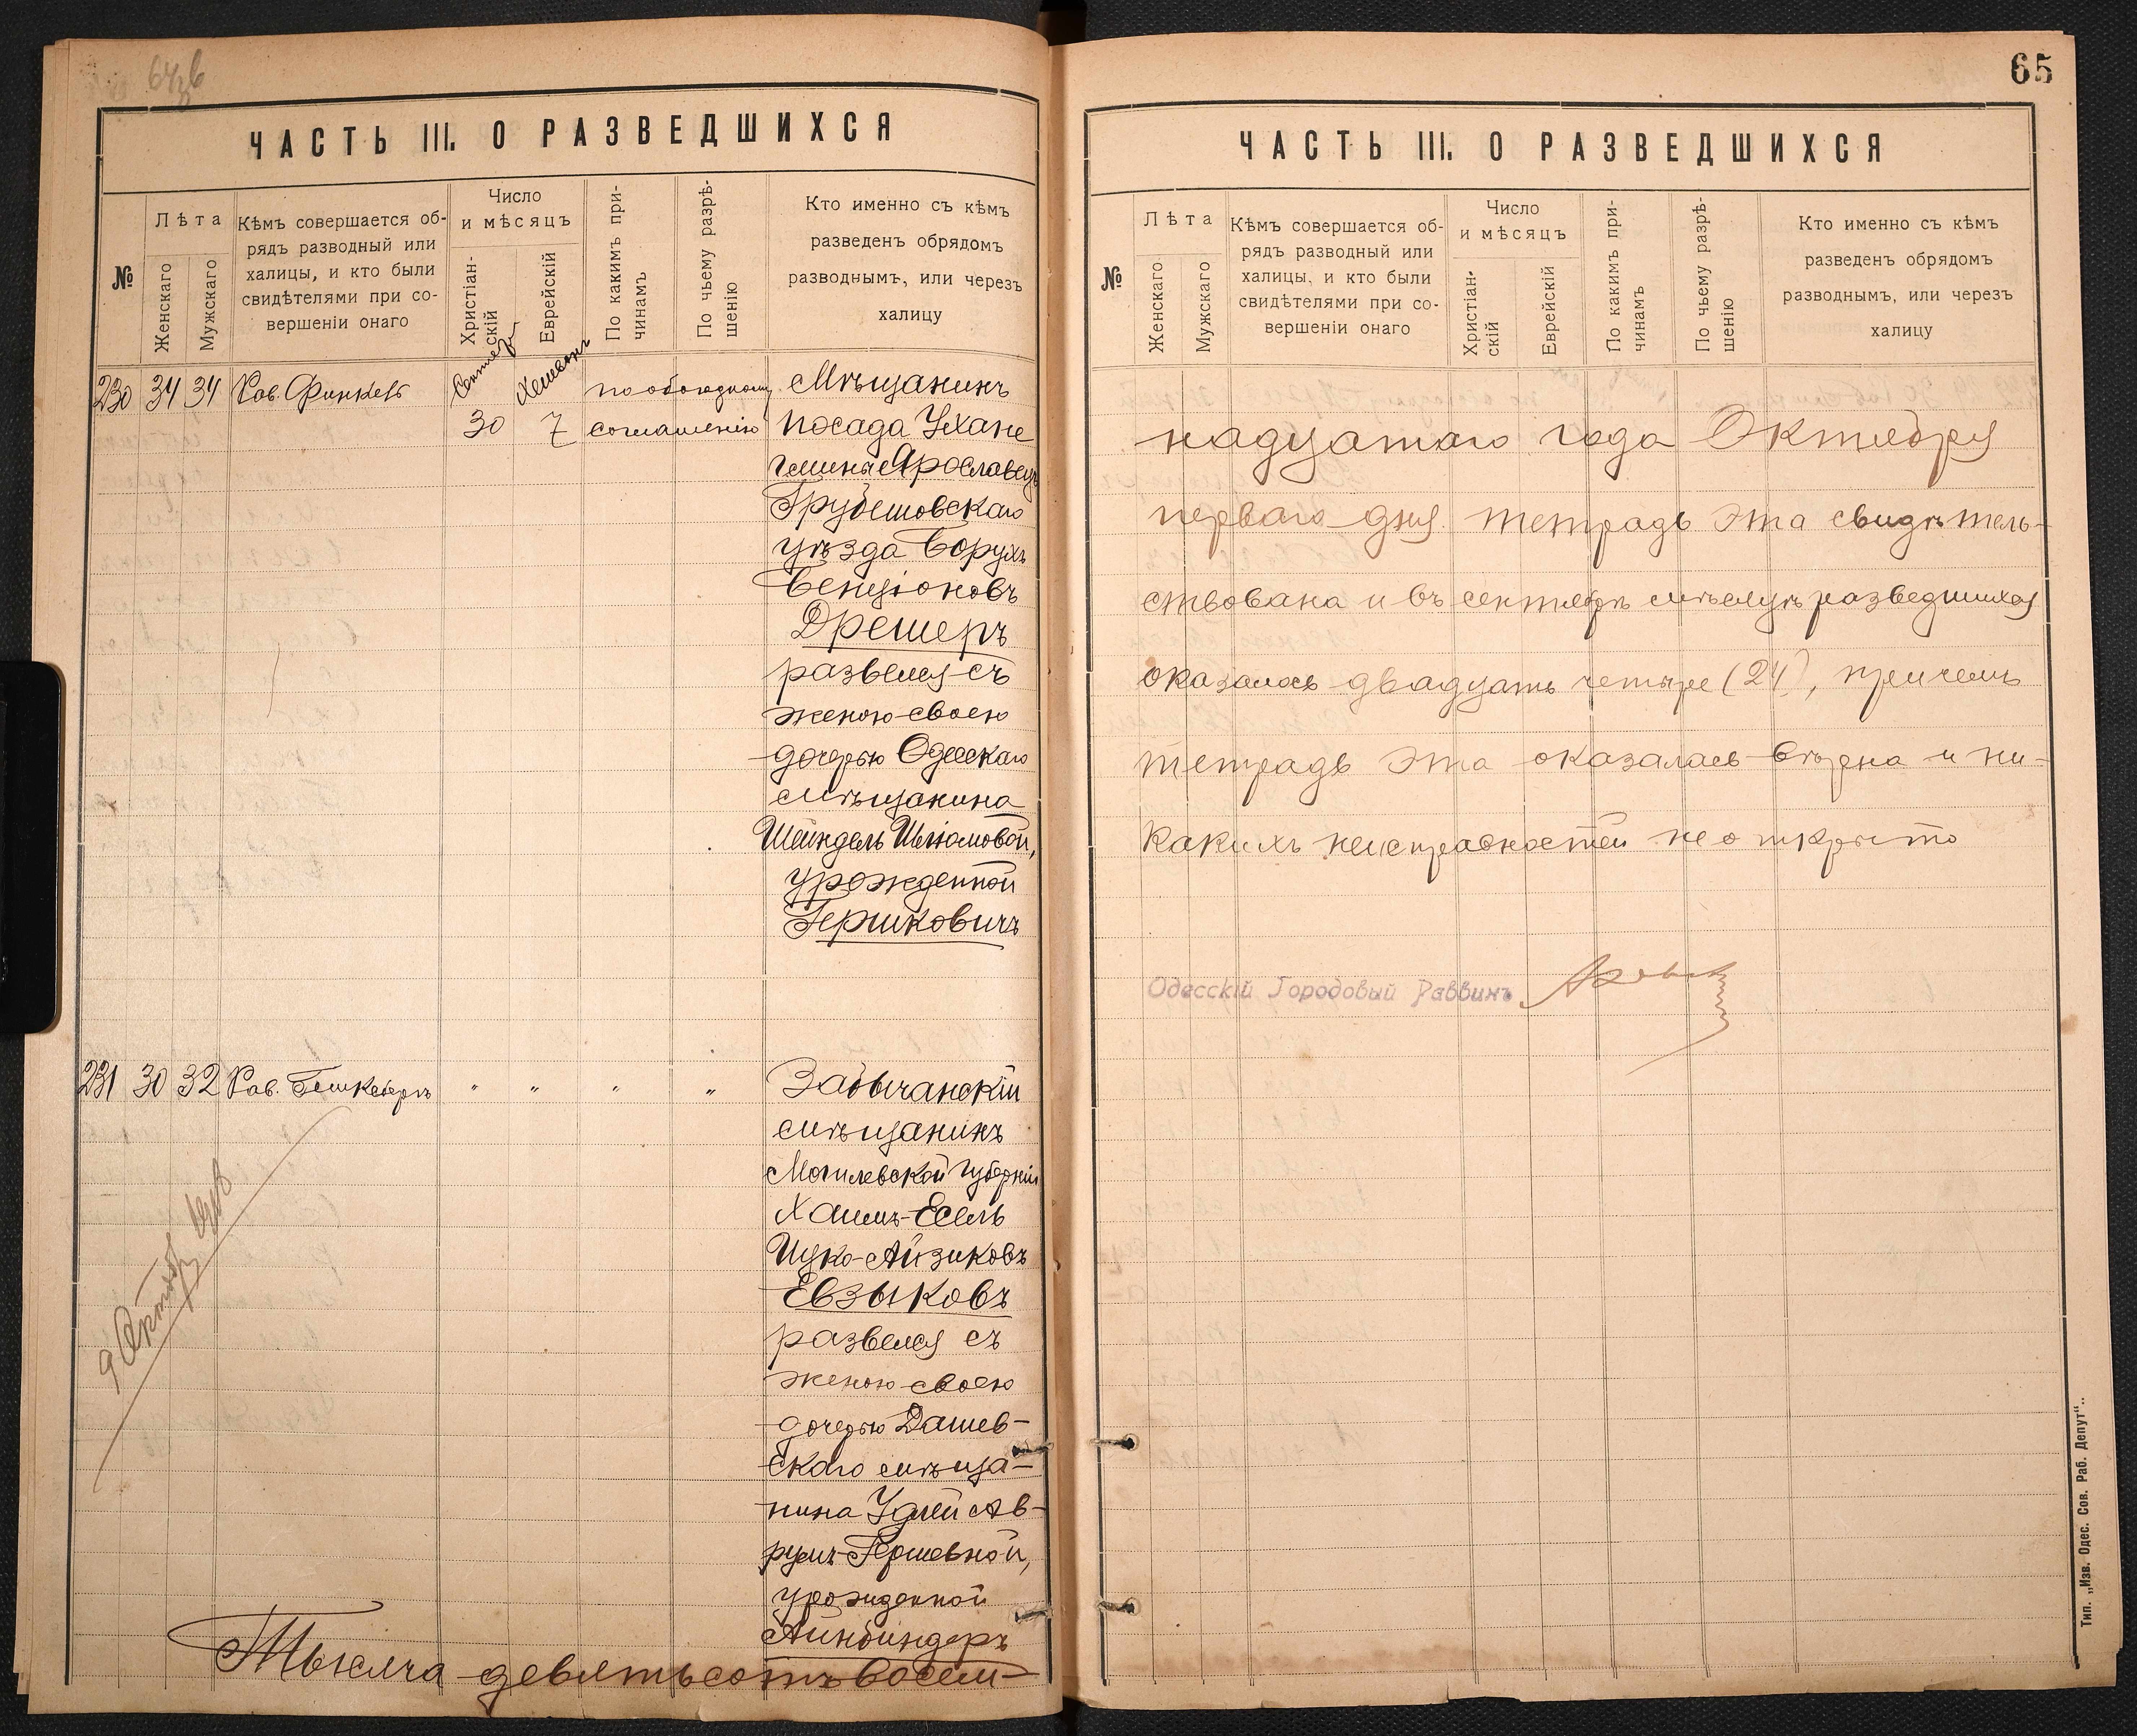 ЧАСТЬ III. О РАЗВЕДШИХСЯ
№
Лѣта
Женскаго
Мужскаго
Кѣмъ совершается об-
рядъ разводный или
халицы, и кто были
свидѣтелями при со-
вершеніи онаго
Число
и мѣсяцъ
Христіан-
скій
Еврейскій
По какимъ при-
чинамъ
По чьему разрѣ-
шенію
Кто именно съ кѣмъ
разведенъ обрядомъ
разводнымъ, или черезъ
халицу
230 34 34 Рав. Финкель 30 Хешванъ 7 по обоюдному
соглашенію
Мѣщанинъ
посада Ухане
гмины Ярославецъ
Грубешовскаго
уѣзда Борухъ
Бенціоновъ
Дрешеръ
развелся съ
женою своею
дочерью Одесскаго
мѣщанина
Шейндель Шліомовой,
урожденной
Гершковичъ
231 30 32 Рав. " " " "
Забычанскій
мѣщанинъ
Могилевской губерніи
Хаимъ-Есель
Ицко-Айзиковъ
Евзыковъ
развелся съ
женою своею
дочерью Дашев-
скаго мѣща-
нина Удлей Ав-
румъ-Гершевной,
урожденной
Айнбиндеръ
9 Октяб 1918
Тысяча девятьсотъ восем-
65
ЧАСТЬ III. О РАЗВЕДШИХСЯ
№
Лѣта
Женскаго
Мужскаго
Кѣмъ совершается об-
рядъ разводный или
халицы, и кто были
свидѣтелями при со-
вершеніи онаго
Число
и мѣсяцъ
Христіан-
скій
Еврейскій
По какимъ при-
чинамъ
По чьему разрѣ-
шенію
Кто именно съ кѣмъ
разведенъ обрядомъ
разводнымъ, или черезъ
халицу
надцатаго года Октября
перваго дня тетрадь эта свидѣтель-
ствована и въ сентябрѣ мѣсяцѣ разведшихся
оказалось двадцать четыре (24), причемъ
тетрадь эта оказалась вѣрна и ни-
какихъ неисправностей не открыто
Одесскій Городовый Раввинъ
Тип. „Изв. Одес. Сов. Раб. Депут“..